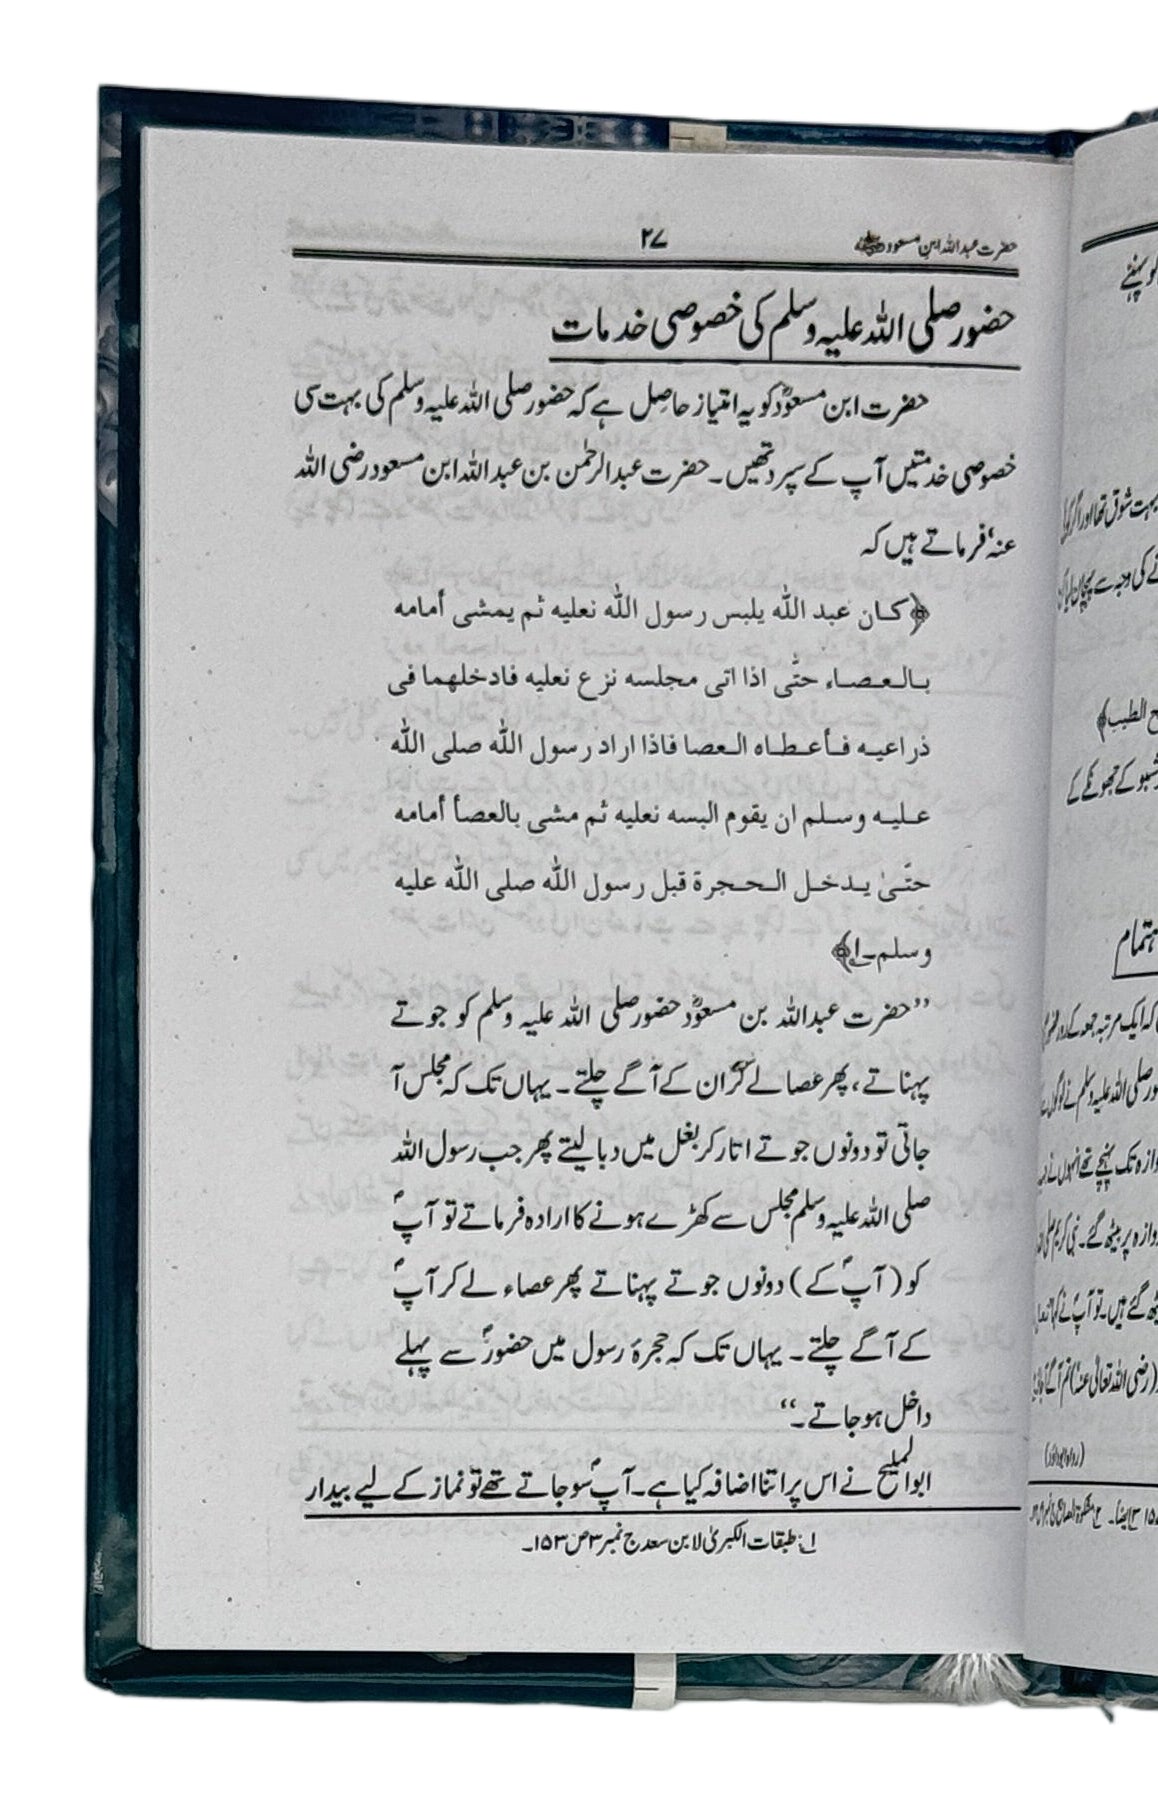 حضرت عبداللہ ابن مسعودؓ
۲۷
حضور صلی اللہ علیہ وسلم کی خصوصی خدمات
حضرت ابن مسعودؓ کو یہ امتیاز حاصل ہے کہ حضور صلی اللہ علیہ وسلم کی بہت سی
خصوصی خدمتیں آپ کے سپرد تھیں۔ حضرت عبدالرحمٰن بن عبداللہ ابن مسعود رضی اللہ
عنہٗ فرماتے ہیں کہ
﴿کان عبد اللہ یلبس رسول اللہ نعلیہ ثم یمشی أمامہ
بالعصاء حتّٰی اذا اتی مجلسہ نزع نعلیہ فادخلھما فی
ذراعیہ فأعطاہ العصا فاذا اراد رسول اللہ صلی اللہ
علیہ وسلم ان یقوم البسہ نعلیہ ثم مشی بالعصأ أمامہ
حتّیٰ یدخل الحجرۃ قبل رسول اللہ صلی اللہ علیہ
وسلم۔۱﴾
’’حضرت عبداللہ بن مسعودؓ حضور صلی اللہ علیہ وسلم کو جوتے
پہناتے، پھر عصا لے کر ان کے آگے چلتے۔ یہاں تک کہ مجلس آ
جاتی تو دونوں جوتے اتار کر بغل میں دبا لیتے پھر جب رسول اللہ
صلی اللہ علیہ وسلم مجلس سے کھڑے ہونے کا ارادہ فرماتے تو آپؐ
کو (آپؐ کے) دونوں جوتے پہناتے پھر عصاء لے کر آپؐ
کے آگے چلتے۔ یہاں تک کہ حجرۂ رسول میں حضورؐ سے پہلے
داخل ہو جاتے۔‘‘
ابوالملیح نے اس پر اتنا اضافہ کیا ہے۔ آپؐ سو جاتے تھے تو نماز کے لیے بیدار
۱؎: طبقات الکبریٰ لابن سعد ج نمبر۳ ص۱۵۳۔